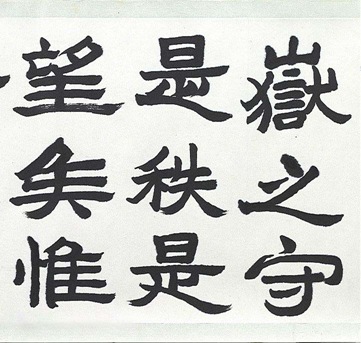 嶽之守
是秩是
望矦惟